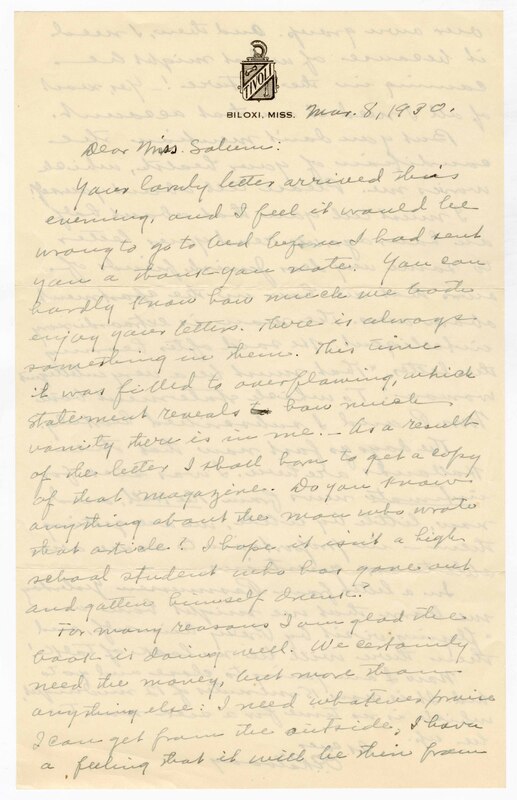 TIVOLI
BILOXI, MISS. Mar. 8, 1930.
Dear Miss Saliem:
Your lovely letter arrived this
evening, and I feel it would be
wrong to go to bed before I had sent
you a thank you note. You can
hardly know how much we both
enjoy your letters. There is always
something in them. This time
it was filled to overflowing, which
statement reveals how much
vanity there is in me. — As a result
of the letter I shall have to get a copy
of that magazine. Do you know
anything about the man who wrote
that article? I hope it isn't a high
school student who has gone out
and gotten himself drunk?
For many reasons I am glad the
book is doing well. We certainly
need the money, but more than
anything else: I need whatever praise
I can get from the outside. I have
a feeling that it will be thin from